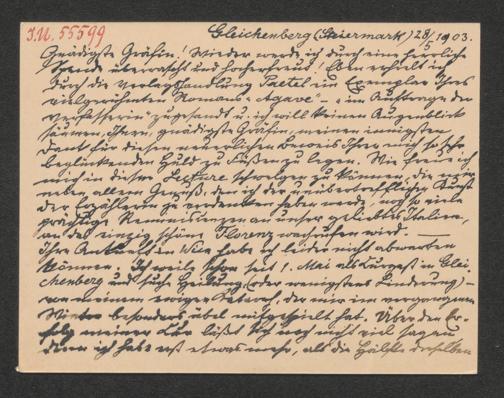 I.N. 55599
Gleichenberg (Steiermark) 28/5 1903.
Gnädigste Gräfin! Wieder werde ich durch eine herrliche
Spende überrascht und hocherfreut! Eben erhielt ich
durch die Verlagshandlung Paetel ein Exemplar Ihres
vielgerühmten Romans „Agave" – „im Auftrage der
Verfasserin" zugesandt u. ich will keinen Augenblick
säumen, Ihnen, gnädigste Gräfin, meinen innigsten
Dank für diesen neuerlichen Beweis Ihrer mich so sehr
beglückenden Huld zu Füßen zu legen. Wie freue ich
mich in dieser Lectüre schwelgen zu können, die mir
neben allem Genuß, den ich der unübertrefflichen Kunst
der Erzählerin zu verdanken haben werde, noch so viele
prächtige Reminiscenzen an unser geliebtes Italien,
an das einzig schöne Florenz wachrufen wird. —
Ihre Ankunft in Wien habe ich leider nicht abwarten
können. Ich weile schon seit 1. Mai als Curgast in Glei-
chenberg und suche Heilung (oder wenigstens Linderung) –
von meinem ewigen Katarrh, der mir im vergangenen
Winter besonders übel mitgespielt hat. Über den Er-
folg meiner Cur läßt sich noch nicht viel sagen
denn ich habe erst etwas mehr, als die Hälfte derselben